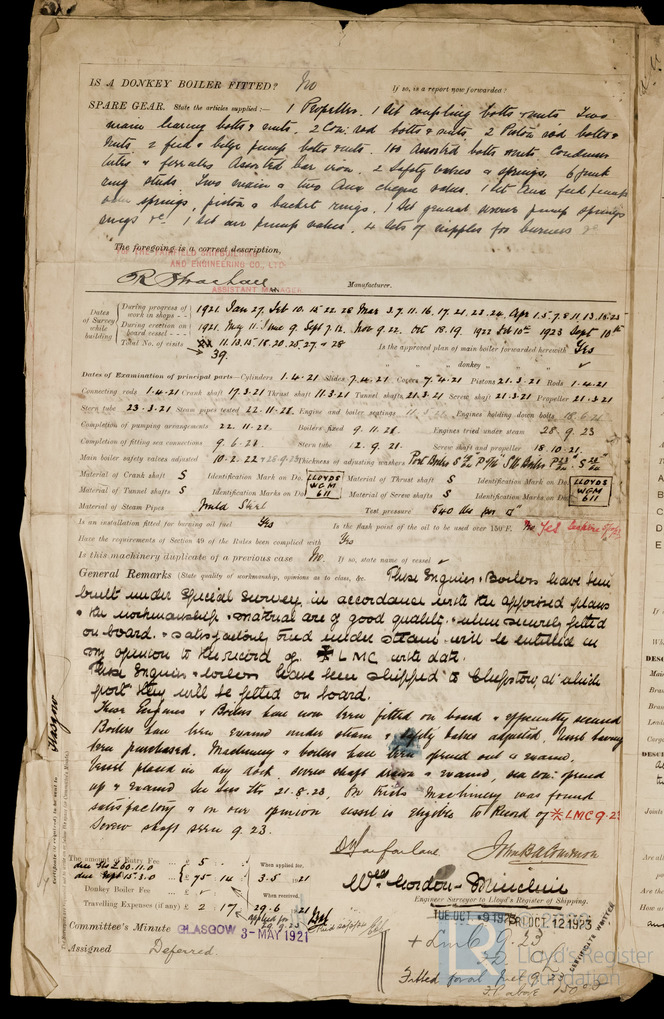 IS A DONKEY BOILER FITTED? No If so, is a report now forwarded?
SPARE GEAR. State the articles supplied:— 1 Propeller. 1 Set coupling bolts & nuts. Two
main bearing bolts & nuts. 2 Con. rod bolts & nuts. 2 Piston rod bolts &
nuts. 2 feed & bilge pump bolts & nuts. assorted bolts & nuts. Condenser
tubes & ferrules Assorted bar iron. 2 Safety valve springs. 6 junk
ring studs. Two main & two Aux cheque valves. 1 Set Aux feed pump
springs, piston & bucket rings. 1 Set general service pump springs
rings &c. 1 Set air pump valves. 4 Sets of nipples for burners &c
The foregoing is a correct description,
FOR THE FAIRFIELD SHIPBUILDING
AND ENGINEERING CO., LTD.
ASSISTANT MANAGER
Manufacturer.
Dates of Survey while building
During progress of work in shops - - 1921. Jan 27, Feb 10. 15. 22. 28 Mar 3. 7. 11. 16. 17. 21. 23. 24. Apr 1. 5. 7. 8. 11. 13. 18. 23
During erection on board vessel - - - 1921. May 11. June 9. Sept 7. 12. Nov 9. 22. Oct 18. 19. 1922 Feb 10th. 1923 Sept 10th
Total No. of visits 11. 13. 15. 18. 20. 25. 27. & 28 Is the approved plan of main boiler forwarded herewith Yes
39. " " " donkey " " " ✓
Dates of Examination of principal parts—Cylinders 1.4.21 Slides 7.4.21 Covers 7.4.21 Pistons 21.3.21 Rods 1.4.21
Connecting rods 1.4.21 Crank shaft 17.3.21 Thrust shaft 11.3.21 Tunnel shafts 21.3.21 Screw shaft 21.3.21 Propeller 21.3.21
Stern tube 23.3.21 Steam pipes tested 22.11.28 Engine and boiler seatings Engines holding down bolts 18.6.21
Completion of pumping arrangements 22.11.21. Boilers fixed 9.11.28. Engines tried under steam 28.9.23
Completion of fitting sea connections 9.6.28. Stern tube 12.9.21. Screw shaft and propeller 18.10.21.
Main boiler safety valves adjusted 10.2.22 & 25.9.23 Thickness of adjusting washers
Material of Crank shaft S Identification Mark on Do. LLOYDS WGM 611 Material of Thrust shaft S Identification Mark on Do. LLOYDS WGM 611
Material of Tunnel shafts S Identification Marks on Do. Material of Screw shafts S Identification Marks on Do.
Material of Steam Pipes Weld Steel Test pressure 540 lbs per □"
Is an installation fitted for burning oil fuel Yes Is the flash point of the oil to be used over 150°F. No Yes
Have the requirements of Section 49 of the Rules been complied with Yes
Is this machinery duplicate of a previous case No. If so, state name of vessel ✓
General Remarks (State quality of workmanship, opinions as to class, &c. These Engines & Boilers have been
built under Special Survey in accordance with the approved plans
& the workmanship & material are of good quality & when securely fitted
on board & satisfactorily tried under steam will be entitled in
my opinion to the record of ✠ LMC with date.
These Engines & boilers have been shipped to Chepstow, at which
port they will be fitted on board.
These Engines & Boilers have now been fitted on board & efficiently secured
Boilers have been examd under steam & safety valves adjusted. Vessel having
been purchased. Machinery & boilers have been opened out & examd.
Vessel placed in dry dock. screw shaft drawn & examd, sea con: opened
up & examd See 21.8.23. On trials Machinery was found
satisfactory & in our opinion vessel is eligible to Record of ✠ LMC 9.23
Screw shaft seen 9.23.
D. Macfarlane.
Wm Gordon-Minchin
Engineer Surveyor to Lloyd's Register of Shipping.
The amount of Entry Fee .. £ 5 : When applied for,
£ 75 : 14 3.5.1921
Donkey Boiler Fee .. .. £ : When received,
Travelling Expenses (if any) £ 2 : 17 29.6.21
Committee's Minute GLASGOW 3-MAY 1921
Assigned Deferred.
TUE. OCT. -9 1923 FRI. OCT. 12 1923
+ LMC 9.23
Fitted for oil fuel 9.23
F.P. above 150°F
CERTIFICATE WRITTEN
Glasgow
LR
Lloyd's Register
Foundation